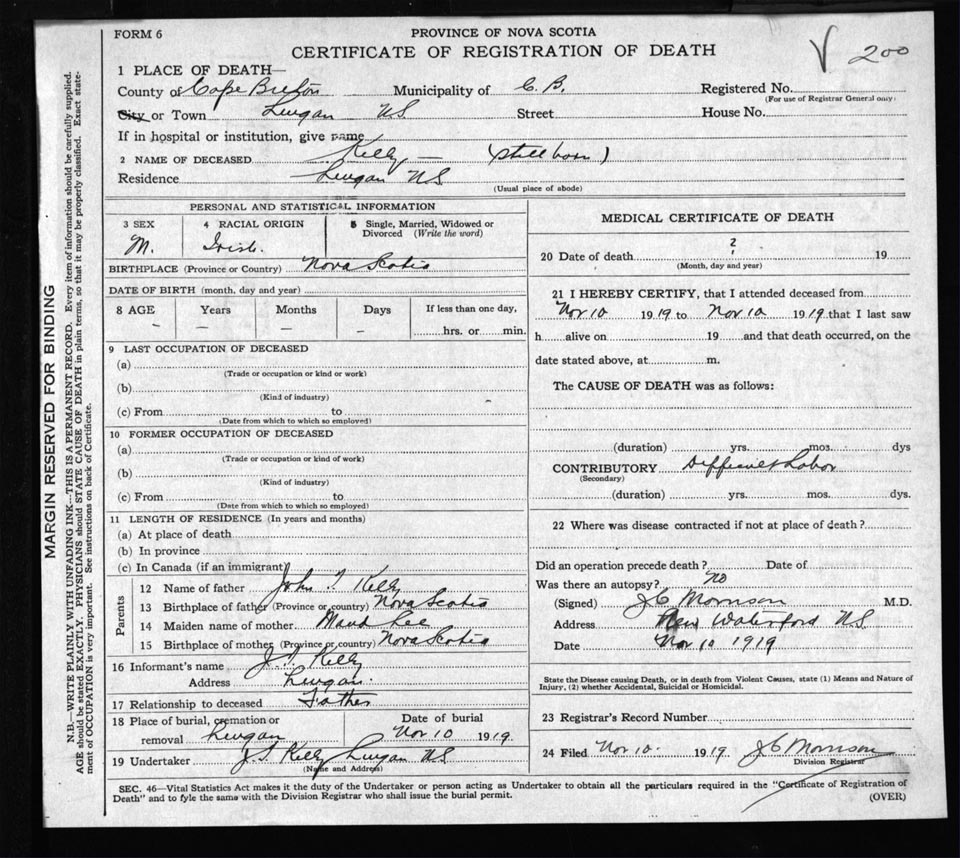 FORM 6
PROVINCE OF NOVA SCOTIA
CERTIFICATE OF REGISTRATION OF DEATH
√ 200
1 PLACE OF DEATH—
County of Cape Breton Municipality of C. B. Registered No.
(For use of Registrar General only)
City or Town Lingan NS Street House No.
If in hospital or institution, give name
2 NAME OF DECEASED Kelly — (Stillborn)
Residence Lingan NS
(Usual place of abode)
PERSONAL AND STATISTICAL INFORMATION
3 SEX 4 RACIAL ORIGIN 5 Single, Married, Widowed or
Divorced (Write the word)
M. Irish.
BIRTHPLACE (Province or Country) Nova Scotia
DATE OF BIRTH (month, day and year)
8 AGE Years Months Days If less than one day,
— — — hrs. or min.
9 LAST OCCUPATION OF DECEASED
(a)
(Trade or occupation or kind or work)
(b)
(Kind of industry)
(c) From to
(Date from which to which so employed)
10 FORMER OCCUPATION OF DECEASED
(a)
(Trade or occupation or kind of work)
(b)
(Kind of industry)
(c) From to
(Date from which to which so employed)
11 LENGTH OF RESIDENCE (In years and months)
(a) At place of death
(b) In province
(c) In Canada (if an immigrant)
Parents
12 Name of father John T Kelly
13 Birthplace of father (Province or country) Nova Scotia
14 Maiden name of mother Maud Lee
15 Birthplace of mother (Province or country) Nova Scotia
16 Informant's name J. T. Kelly
Address Lingan.
17 Relationship to deceased Father
18 Place of burial, cremation or Date of burial
removal Lingan Nov 10 1919.
19 Undertaker J. T. Kelly Lingan NS
(Name and Address)
MEDICAL CERTIFICATE OF DEATH
20 Date of death 19
(Month, day and year)
21 I HEREBY CERTIFY, that I attended deceased from
Nov 10 1919 to Nov 10 1919 that I last saw
h alive on 19 and that death occurred, on the
date stated above, at m.
The CAUSE OF DEATH was as follows:
(duration) yrs. mos. dys
CONTRIBUTORY Difficult Labor
(Secondary)
(duration) yrs. mos. dys.
22 Where was disease contracted if not at place of death?
Did an operation precede death? Date of
Was there an autopsy? No
(Signed) J C Morrison M.D.
Address New Waterford NS
Date Nov 10 1919
State the Disease causing Death, or in death from Violent Causes, state (1) Means and Nature of
Injury, (2) whether Accidental, Suicidal or Homicidal.
23 Registrar's Record Number
24 Filed Nov 10. 1919 J C Morrison
Division Registrar
SEC. 46—Vital Statistics Act makes it the duty of the Undertaker or person acting as Undertaker to obtain all the particulars required in the "Certificate of Registration of
Death" and to fyle the same with the Division Registrar who shall issue the burial permit.
(OVER)
MARGIN RESERVED FOR BINDING
N.B.—WRITE PLAINLY WITH UNFADING INK—THIS IS A PERMANENT RECORD. Every item of information should be carefully supplied.
AGE should be stated EXACTLY. PHYSICIANS should STATE CAUSE OF DEATH in plain terms, so that it may be properly classified. Exact state-
ment of OCCUPATION is very important. See instructions on back of Certificate.